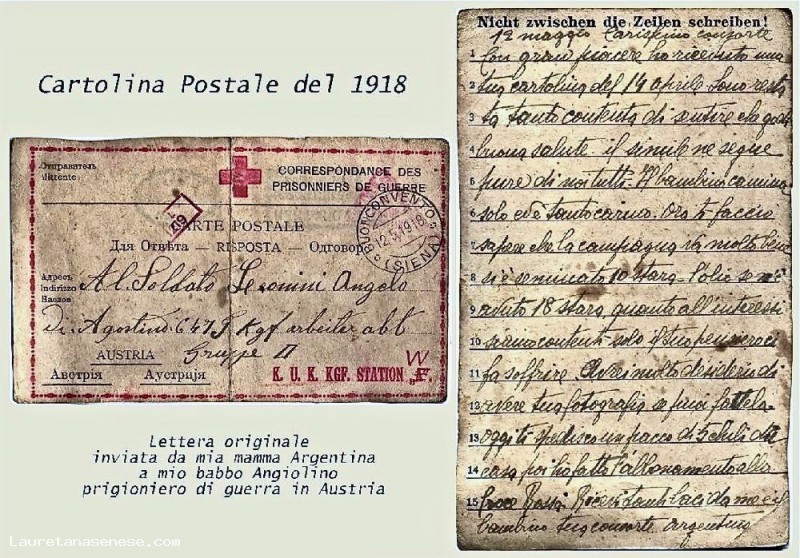 Cartolina Postale del 1918
Отправитель
Mittente:
CORRESPONDANCE DES
PRISONNIERS DE GUERRE
CARTE POSTALE
Для Отвѣта — RISPOSTA — Одговоръ
BUONCONVENTO
12.5.1918
(SIENA)
Адресъ
Indirizzo
Наслов
Al Soldato Lesonini Angelo
di Agostino 647 J. Kgf. arbeiter abt
Gruppe II
AUSTRIA
Австрія Аустрија
K. U. K. KGF. STATION „F.
W
Lettera originale
inviata da mia mamma Argentina
a mio babbo Angiolino
prigioniero di guerra in Austria
Lauretanasenese.com
Nicht zwischen die Zeilen schreiben!
12 maggio Carissimo consorte
1 Con gran piacere ho ricevuto una
2 tua cartolina del 19 aprile Sono resta
3 ta tanto contenta di sentire che godi
4 buona salute il simile ne segue
5 pure di noi tutti. Il bambino camina
6 solo ed è tanto carino. Ora ti faccio
7 sapere che la campagna va molto bene
8 si è seminato 10 stara. L'olio se n'è
9 avuto 18 stara, quanto all'interessi
10 siamo contenti solo il tuo pensiero ci
11 fa soffrire. Avrei molto desiderio di
12 avere tua fotografia se puoi fattela
13 oggi ti spedisco un pacco di 5 chili da
14 casa poi ho fatto l'abbonamento alla
15 Croce Rossa Ricevi tanti baci da me e il
bambino tua consorte Argentina